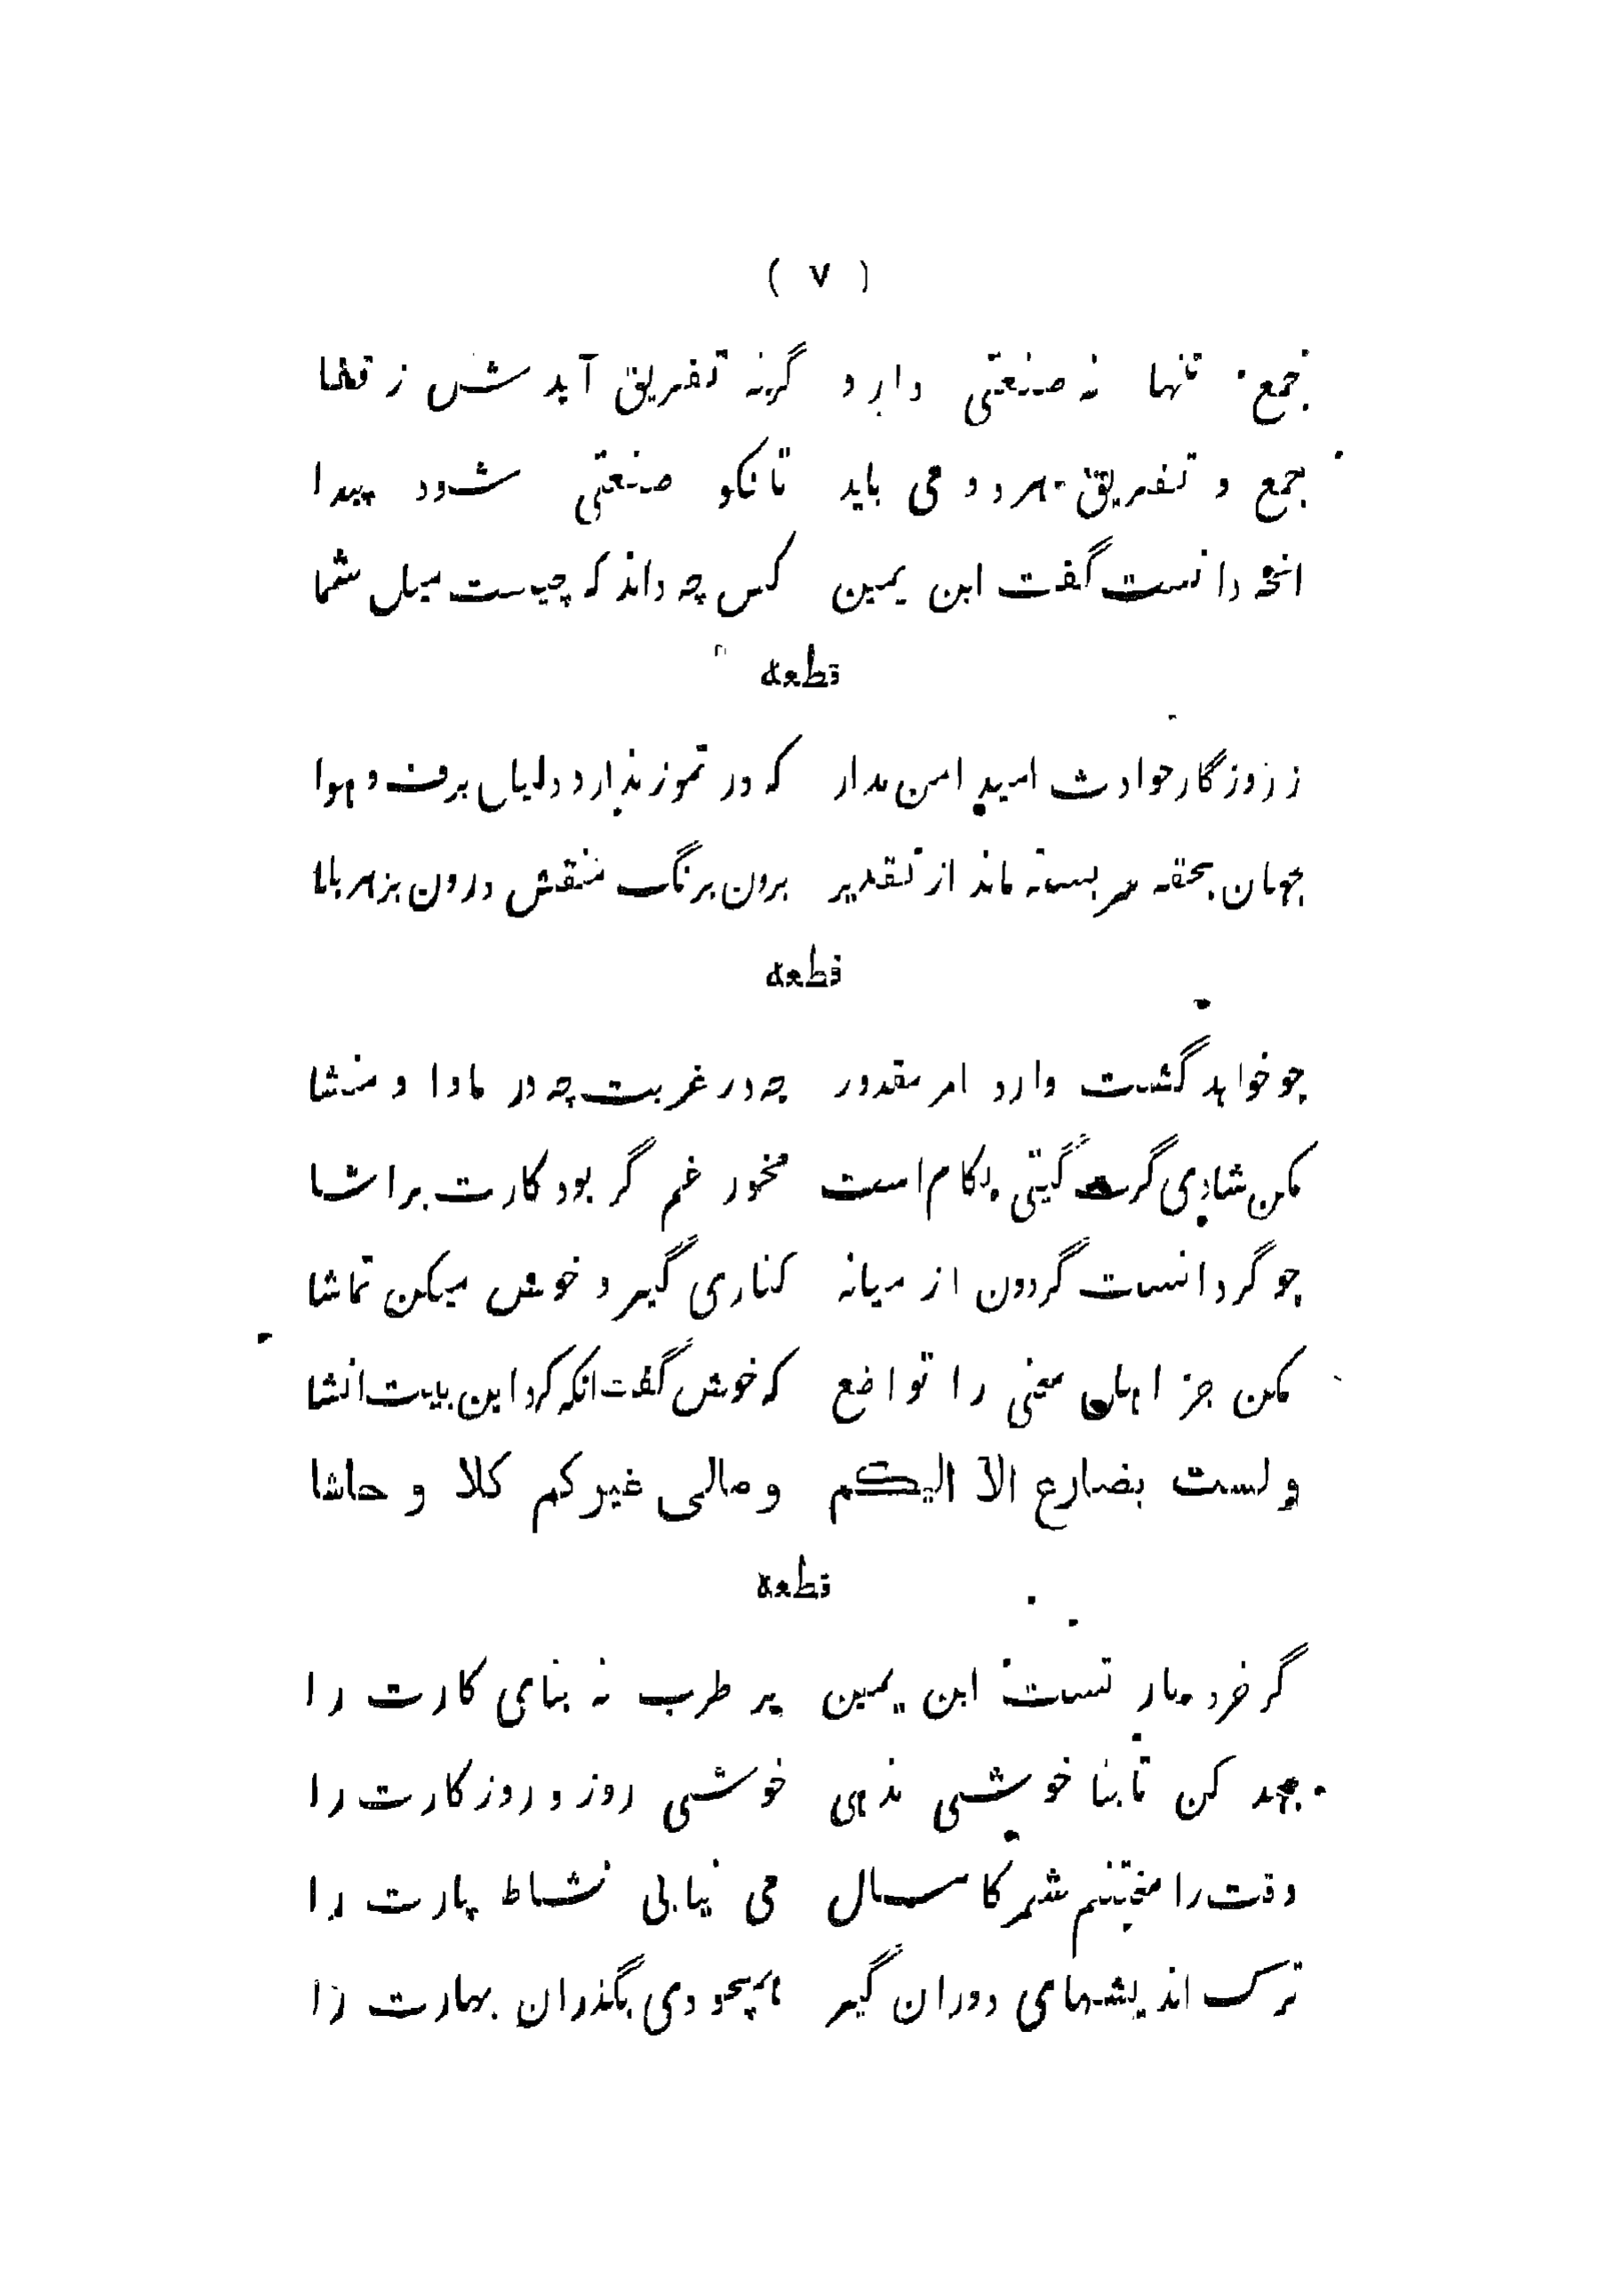 ( ٧ )
جمع تنها نه صنعتی دارد گرنه تفریق آیدش ز قفا
جمع و تفریق هردو می باید تا نکو صنعتی شود پیدا
انچه دانست گفت ابن یمین کس چه داند که چیست میل شما
قطعه
ز روزگار حوادث امید امن مدار که در تموز ندارد دلیل برف و هوا
جهان بحقه سر بسته ماند از تقدیر برون برنگ منقش درون بزهر بلا
قطعه
چو خواهد گشت وارد امر مقدور چه در غربت چه در ماوا و منشا
مکن شادی گرت گیتی بکام است مخور غم گر بود کارت براشا
چو گردانست گردون از میانه کناری گیر و خوش میکن تماشا
مکن جز اهل معنی را تواضع که خوش گفت انکه کرد این بیت انشا
ولست بضارع الا الیکم ومالی غیرکم کلا و حاشا
قطعه
گر خرد یار تست ابن یمین بر طرب نه بنای کارت را
جهد کن تا بنا خوشی ندهی خوشی روز و روز کارت را
وقت را مغتنم شمر کامسال می نیابی نشاط پارت را
ترک اندیشهای دوران گیر بگذران بهارت را